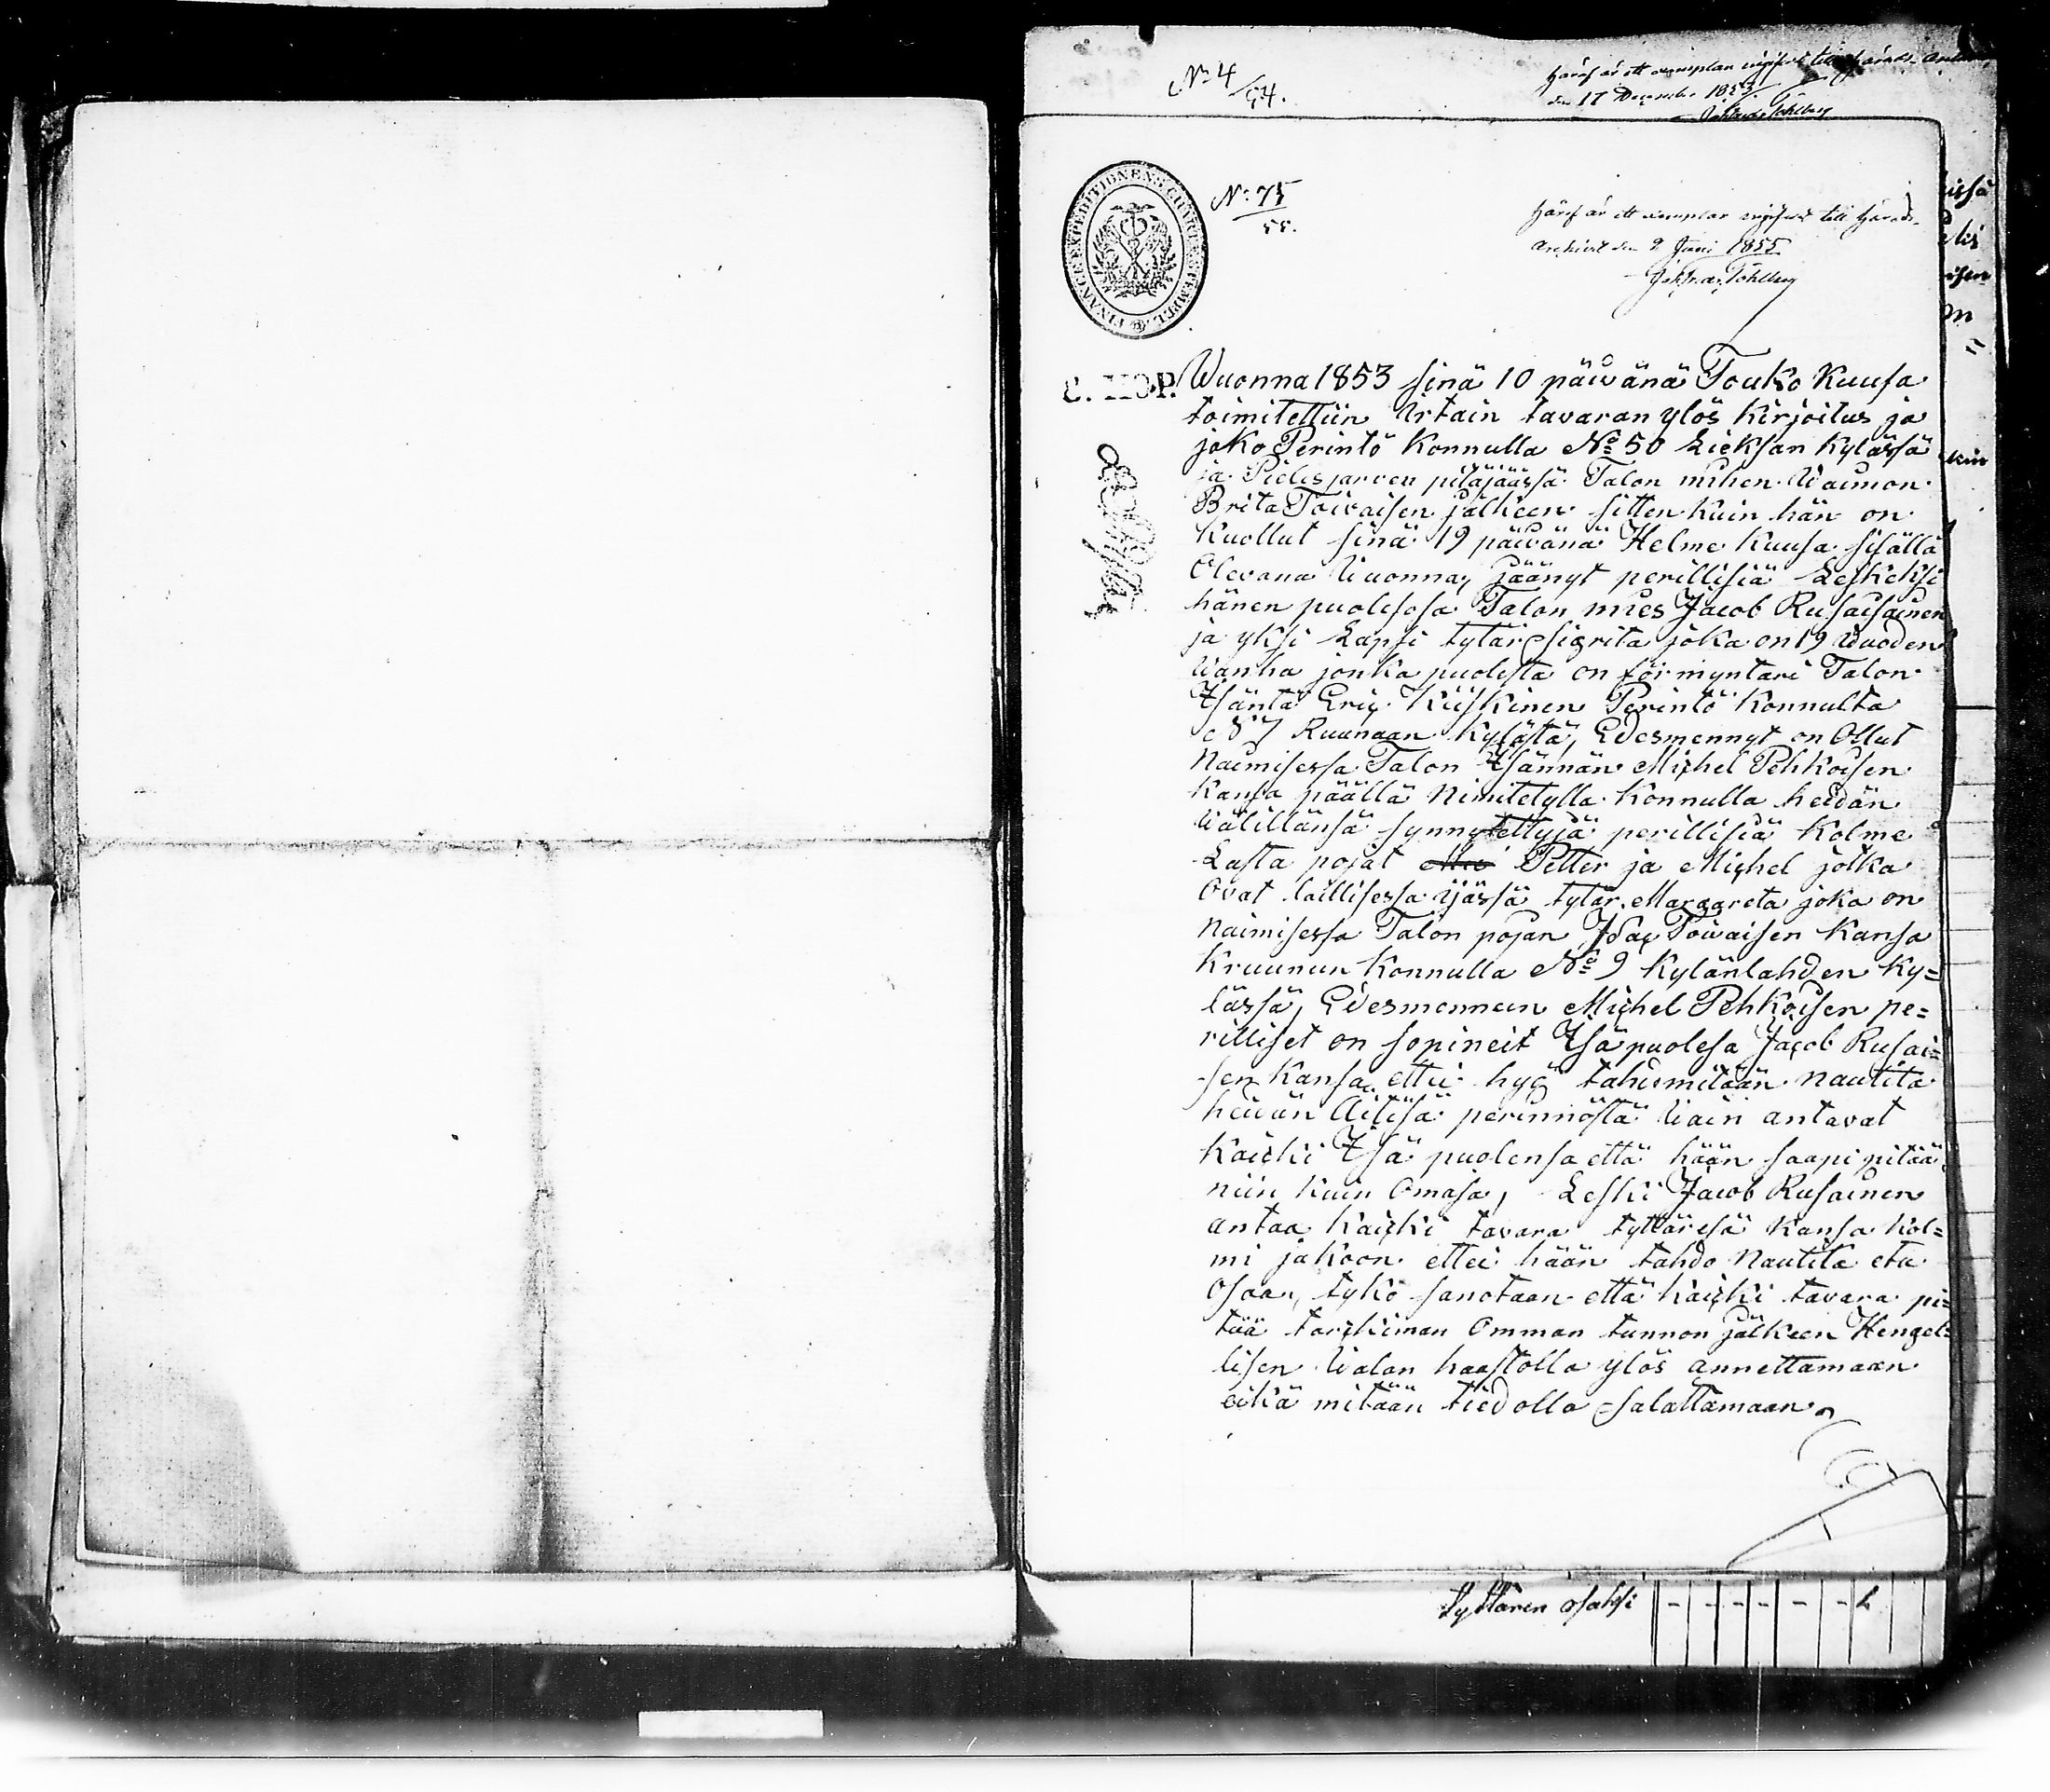 No 4/54.
Häraf är ett exemplar ingifvet till Härads-
den 17 December 1853.
No: 75/55.
Häraf är ett exemplar ingifvet till Härads-
Archivet den 9 Juni 1855
FINANCE EXPEDITIONENS CHARTÆ STEMPEL.
C. KOP.
Wuonna 1853 sinä 10 päivänä Touko Kuusa
toimitettiin irtain tavaran ylös kirjoitus ja
jako Perintö Konnulla No 50 Lieksan Kylässä
ja Pielisjarven pitäjäässä Talon mihen Waimon
Brita Toivaisen jälkeen sitten kuin hän on
Kuollut sinä 19 päivänä Helme Kuusa sisällä
Olevana Wuonna, Jäänyt perillisiä Leskeksi
hänen puolisosa Talon mies Jacob Rusaisainen
ja yksi Lapsi tytär Sigrita joka on 19 Wuoden
Wanha jonka puolesta on förmyntäri Talon
Isäntä Eric Kiiskinen Perintö Konnulta
No 7 Ruunaan Kylästä, Edesmennyt on Ollut
Naimisessa Talon Isännän Michel Pehkoisen
Kansa päällä Nimitetylla Konnulla heidän
Wälillänsä synnytettyjä perillisiä Kolme
Lasta pojat Petter ja Michel jotka
Ovat laillisessa ijässä tytär Margareta joka on
Naimisessa Talon pojan Isac Toivaisen Kansa
Kruunun Konnulla No 9 Kylänlahden Ky=
lässä, Edesmenneen Michel Pehkoisen pe=
rilliset on sopineit Isä puolesa Jacob Rusai=
sen Kansa ettei hyö tahdomitään nautita
heidän Äitisä perinnöstä Wain antavat
Kaicki Isä puolensa että hään saapi pitää
niin kuin Omasa, Leski Jacob Rusainen
antaa kaicki tavara tyttäresä Kansa Kol=
mi jakoon ettei hään tahdo Nautita etu
Osaa, tykö sanotaan että kaicki tavara pi=
tää tarckiman Omman tunnon jälkeen Hengel=
lisen Walan haastolla ylös annettamaan
eikä mitään tiedolla salattamaan
tyttären osaksi